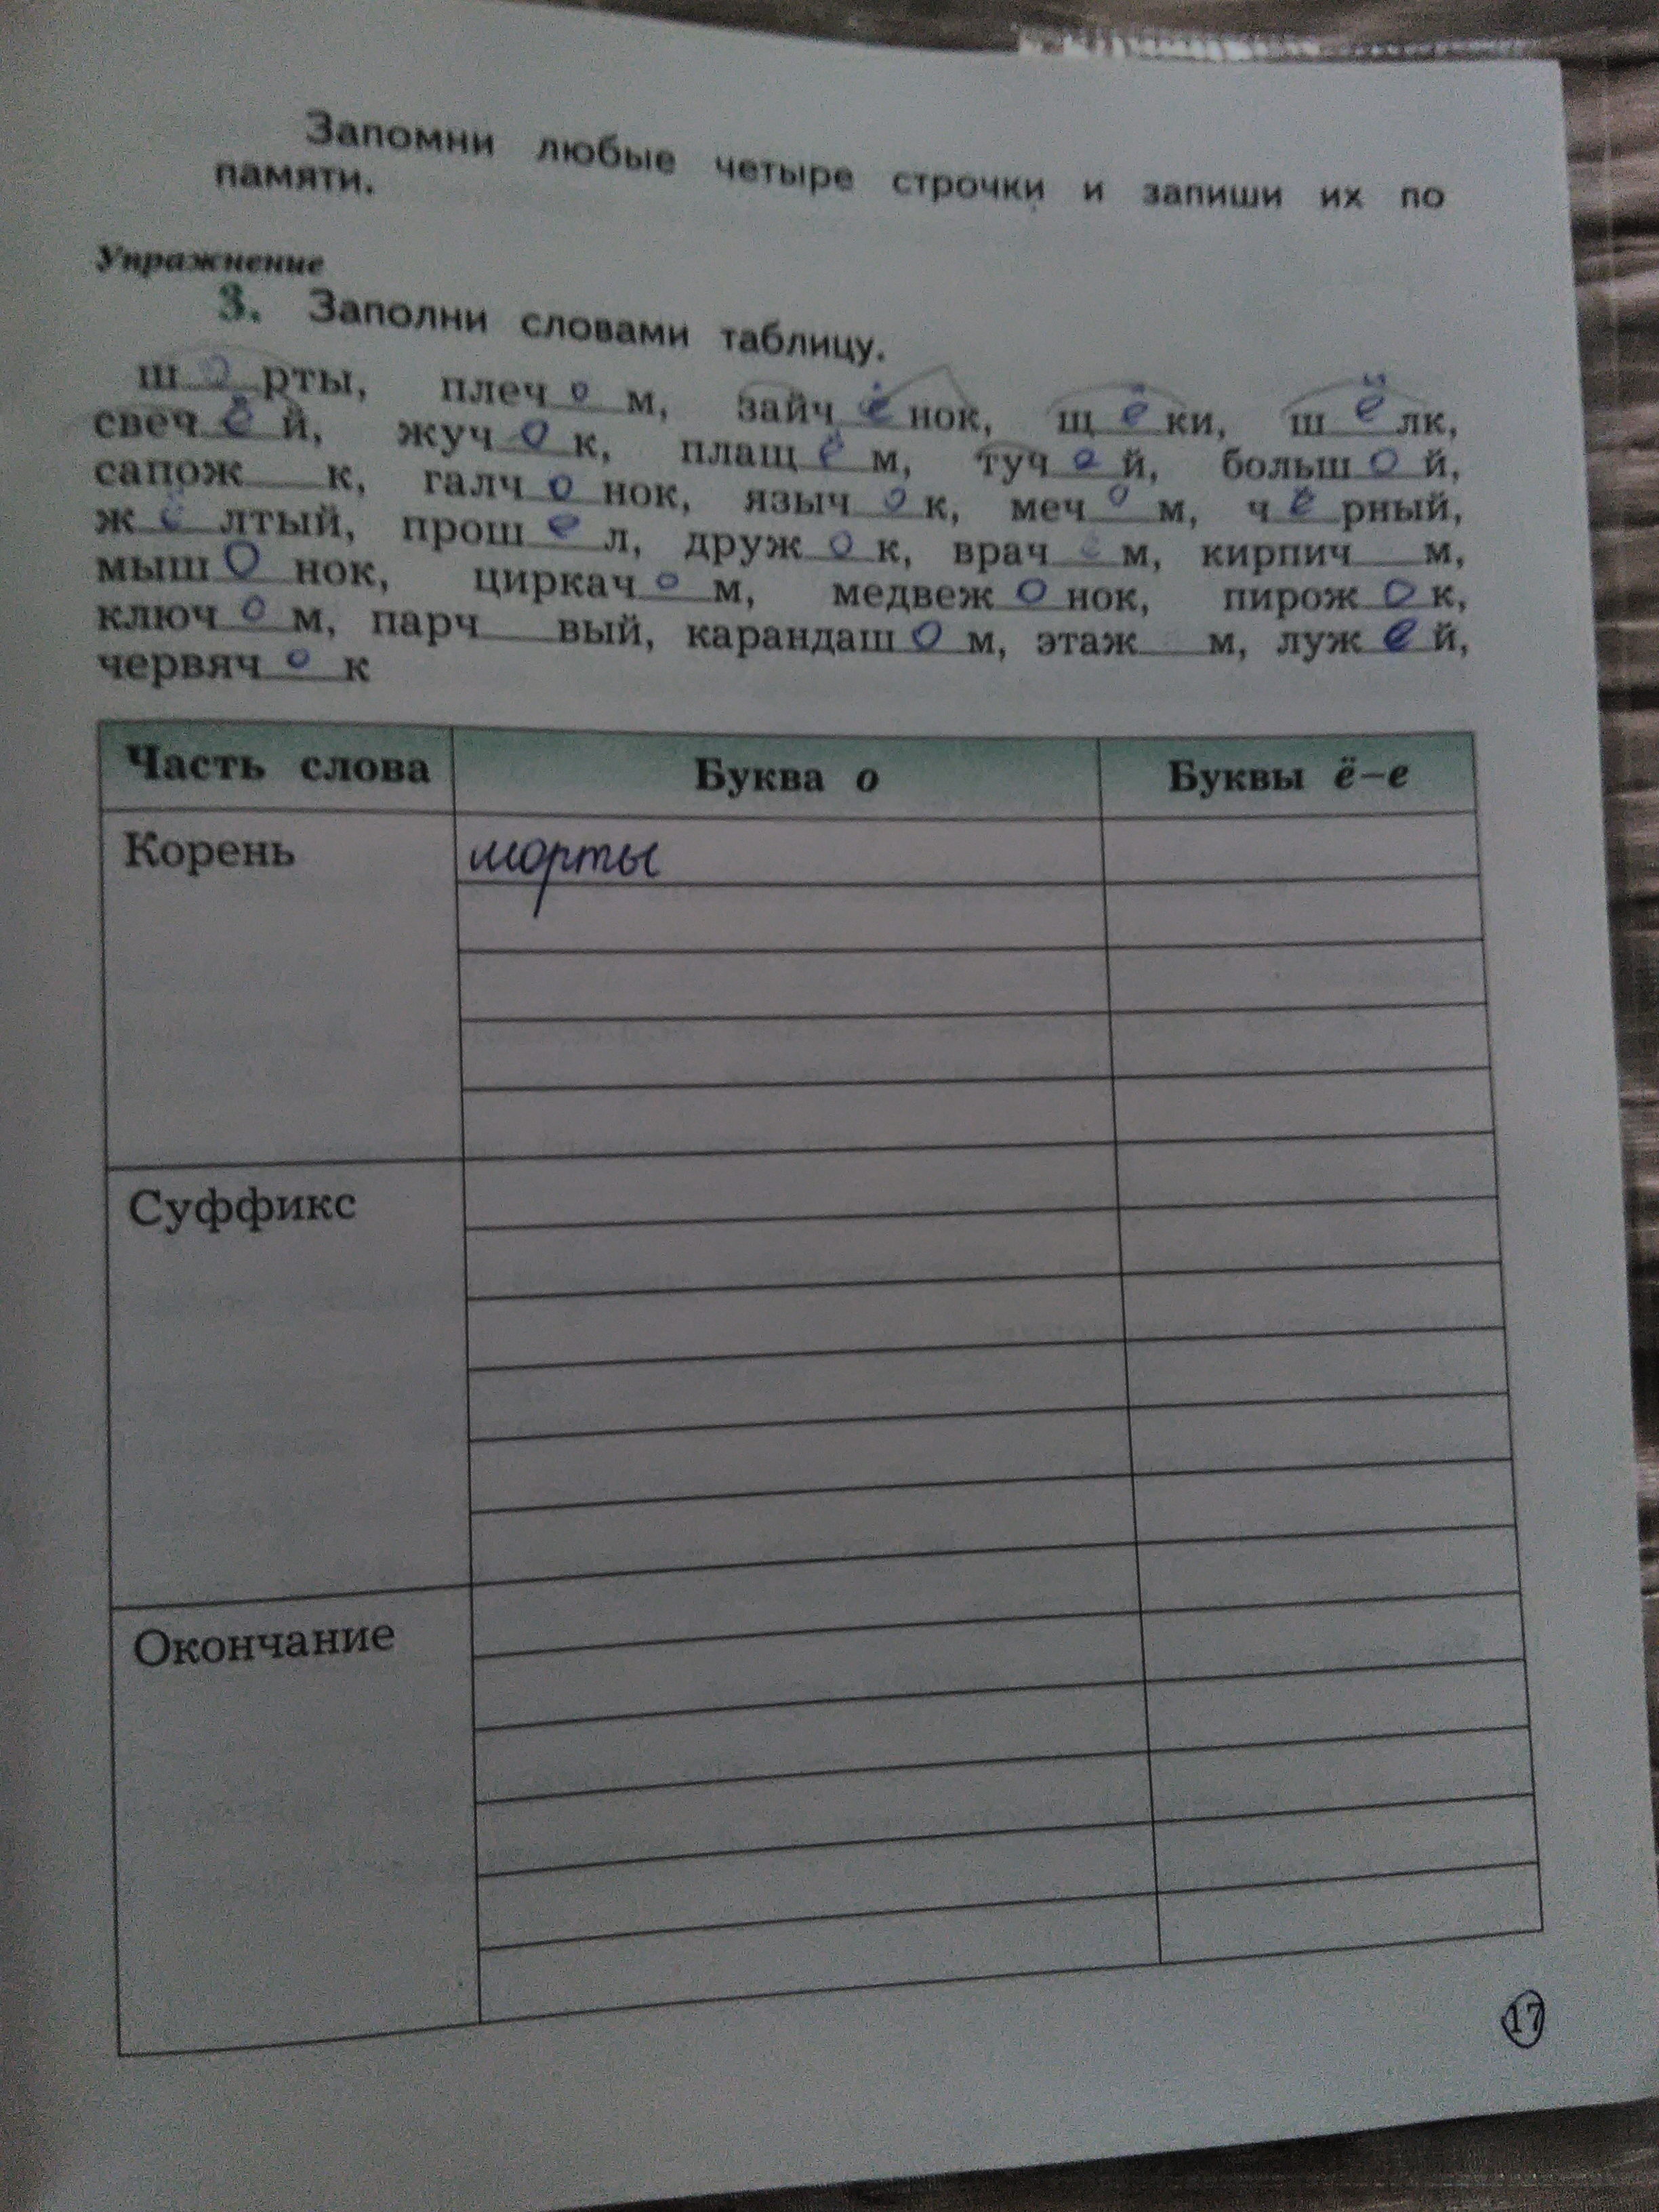 Запомни любые четыре строчки и запиши их по
памяти.
Упражнение
3. Заполни словами таблицу.
ш о рты, плеч о м, зайч ё нок, щ ё ки, ш ё лк,
свеч ё й, жуч о к, плащ ё м, туч е й, больш о й,
сапож___к, галч о нок, языч о к, меч о м, ч ё рный,
ж ё лтый, прош е л, друж о к, врач е м, кирпич___м,
мыш о нок, циркач о м, медвеж о нок, пирож о к,
ключ о м, парч___вый, карандаш о м, этаж___м, луж е й,
червяч о к
Часть слова Буква о Буквы ё–е
Корень шорты
Суффикс
Окончание
17